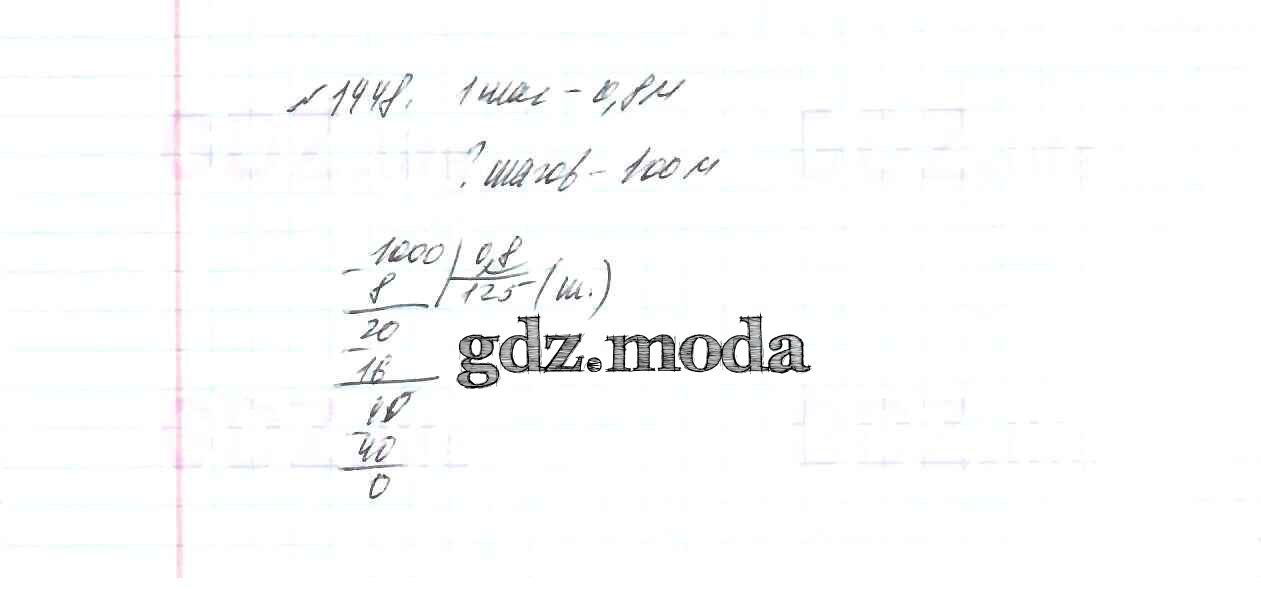 №1448. 1 шаг – 0,8 м
? шагов – 100 м
1000 | 0,8
– 8 | 125 (ш.)
20
– 16
40
– 40
0
gdz.moda